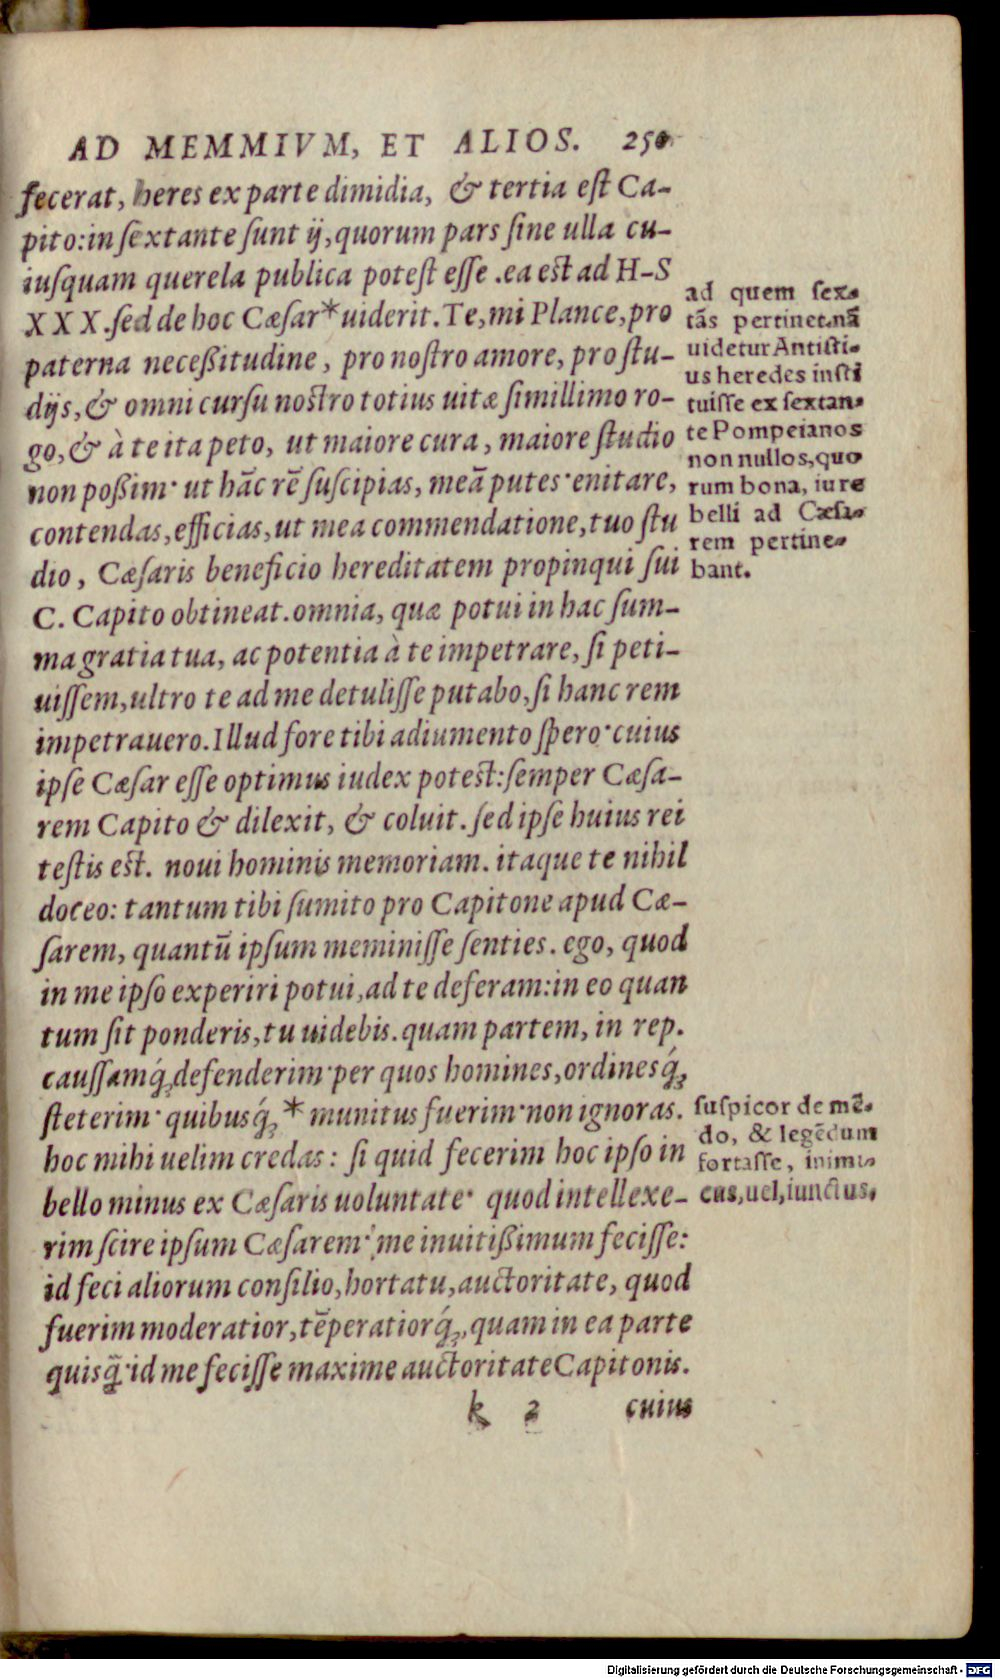 AD MEMMIVM, ET ALIOS. 250
fecerat, heres ex parte dimidia, & tertia est Ca-
pito: in sextante sunt ij, quorum pars sine ulla cu-
iusquam querela publica potest esse. ea est ad H-S
XXX. sed de hoc Cæsar* uiderit. Te, mi Plance, pro
paterna neceßitudine, pro nostro amore, pro stu-
dijs, & omni cursu nostro totius uitæ simillimo ro-
go, & à te ita peto, ut maiore cura, maiore studio
non poßim· ut hāc rē suscipias, meā putes· enitare,
contendas, efficias, ut mea commendatione, tuo stu
dio, Cæsaris beneficio hereditatem propinqui sui
C. Capito obtineat. omnia, quæ potui in hac sum-
ma gratia tua, ac potentia à te impetrare, si peti-
uissem, ultro te ad me detulisse putabo, si hanc rem
impetrauero. Illud fore tibi adiumento spero· cuius
ipse Cæsar esse optimus iudex potest: semper Cæsa-
rem Capito & dilexit, & coluit. sed ipse huius rei
testis est. noui hominis memoriam. itaque te nihil
doceo: tantum tibi sumito pro Capitone apud Cæ-
sarem, quantū ipsum meminisse senties. ego, quod
in me ipso experiri potui, ad te deferam: in eo quan
tum sit ponderis, tu uidebis. quam partem, in rep.
caussamq́; defenderim· per quos homines, ordinesq́;
steterim· quibusq́; * munitus fuerim· non ignoras.
hoc mihi uelim credas: si quid fecerim hoc ipso in
bello minus ex Cæsaris uoluntate· quod intellexe-
rim scire ipsum Cæsarem· me inuitißimum fecisse:
id feci aliorum consilio, hortatu, auctoritate, quod
fuerim moderatior, tēperatiorq́;, quam in ea parte
quisq̄· id me fecisse maxime auctoritate Capitonis.
k 2 cuius
ad quem sex-
tās pertinet. nā
uidetur Antisti-
us heredes insti
tuisse ex sextan-
te Pompeianos
non nullos, quo
rum bona, iure
belli ad Cæsa-
rem pertine-
bant.
suspicor de mē-
do, & legēdum
fortasse, inimi-
cus, uel, iunctus.
Digitalisierung gefördert durch die Deutsche Forschungsgemeinschaft - DFG